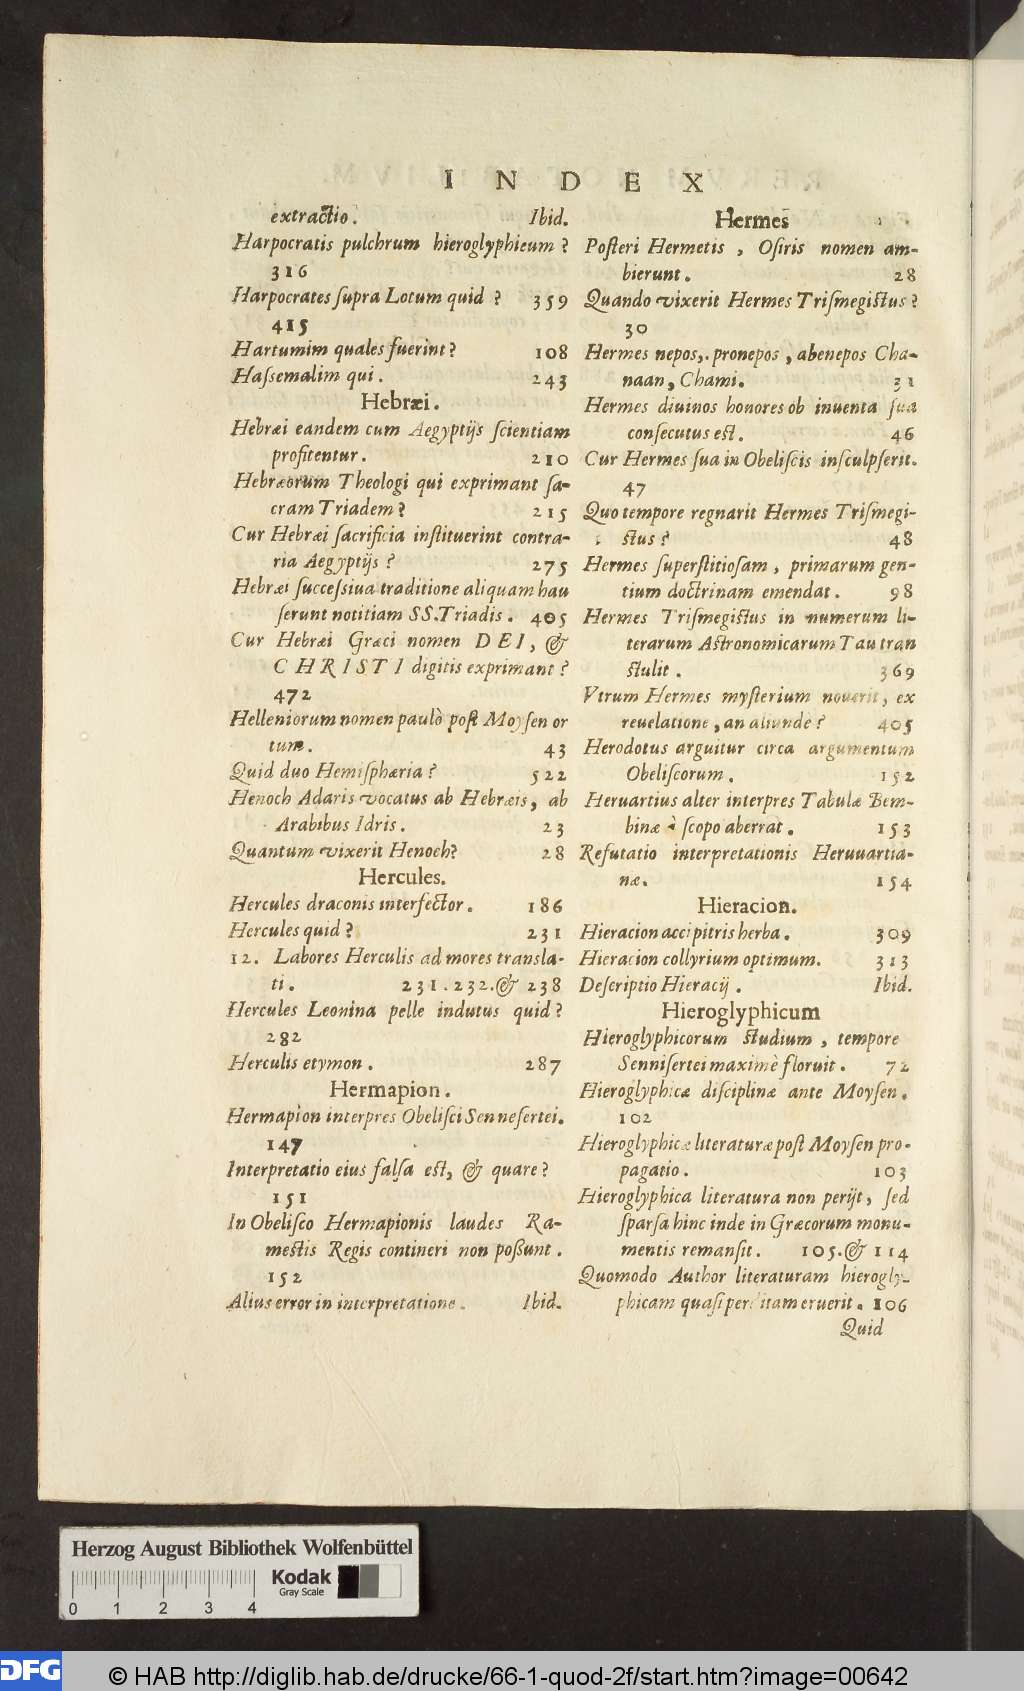 INDEX
extractio. Ibid.
Harpocratis pulchrum hieroglyphicum?
316
Harpocrates ſupra Lotum quid ? 359
415
Hartumim quales fuerint? 108
Haſſemalim qui. 243
Hebræi.
Hebræi eandem cum Aegyptijs ſcientiam
profitentur. 210
Hebræorum Theologi qui exprimant ſa-
cram Triadem? 215
Cur Hebræi ſacrificia inſtituerint contra-
ria Aegyptijs ? 275
Hebræi ſucceſſiua traditione aliquam hau
ſerunt notitiam SS.Triadis. 405
Cur Hebræi Græci nomen DEI, &
CHRISTI digitis exprimant ?
472
Helleniorum nomen paulò poſt Moyſen or
tum. 43
Quid duo Hemiſphæria ? 522
Henoch Adaris vocatus ab Hebræis, ab
Arabibus Idris. 23
Quantum vixerit Henoch? 28
Hercules.
Hercules draconis interfector. 186
Hercules quid ? 231
12. Labores Herculis ad mores transla-
ti. 231.232.& 238
Hercules Leonina pelle indutus quid ?
282
Herculis etymon. 287
Hermapion.
Hermapion interpres Obeliſci Senneſertei.
147
Interpretatio eius falſa eſt, & quare ?
151
In Obeliſco Hermapionis laudes Ra-
meſtis Regis contineri non poßunt.
152
Alius error in interpretatione. Ibid.
Hermes
Poſteri Hermetis, Oſiris nomen am-
bierunt. 28
Quando vixerit Hermes Triſmegiſtus?
30
Hermes nepos,. pronepos, abenepos Cha-
naan, Chami. 31
Hermes diuinos honores ob inuenta ſua
conſecutus eſt. 46
Cur Hermes ſua in Obeliſcis inſculpſerit.
47
Quo tempore regnarit Hermes Triſmegi-
ſtus ? 48
Hermes ſuperſtitioſam, primarum gen-
tium doctrinam emendat. 98
Hermes Triſmegiſtus in numerum li-
terarum Aſtronomicarum Tau tran
ſtulit. 369
Vtrum Hermes myſterium nouerit, ex
reuelatione, an aliundè ? 405
Herodotus arguitur circa argumentum
Obeliſcorum. 152
Heruartius alter interpres Tabulæ Bem-
binæ è ſcopo aberrat. 153
Refutatio interpretationis Heruuartia-
næ. 154
Hieracion.
Hieracion accipitris herba. 309
Hieracion collyrium optimum. 313
Deſcriptio Hieracij. Ibid.
Hieroglyphicum
Hieroglyphicorum ſtudium, tempore
Senniſertei maximè floruit. 72
Hieroglyphicæ diſciplinæ ante Moyſen.
102
Hieroglyphicæ literaturæ poſt Moyſen pro-
pagatio. 103
Hieroglyphica literatura non perijt, ſed
ſparſa hinc inde in Græcorum monu-
mentis remanſit. 105.& 114
Quomodo Author literaturam hierogly-
phicam quaſi perditam eruerit. 106
Quid
Herzog August Bibliothek Wolfenbüttel
Kodak
Gray Scale
0 1 2 3 4
DFG
© HAB http://diglib.hab.de/drucke/66-1-quod-2f/start.htm?image=00642